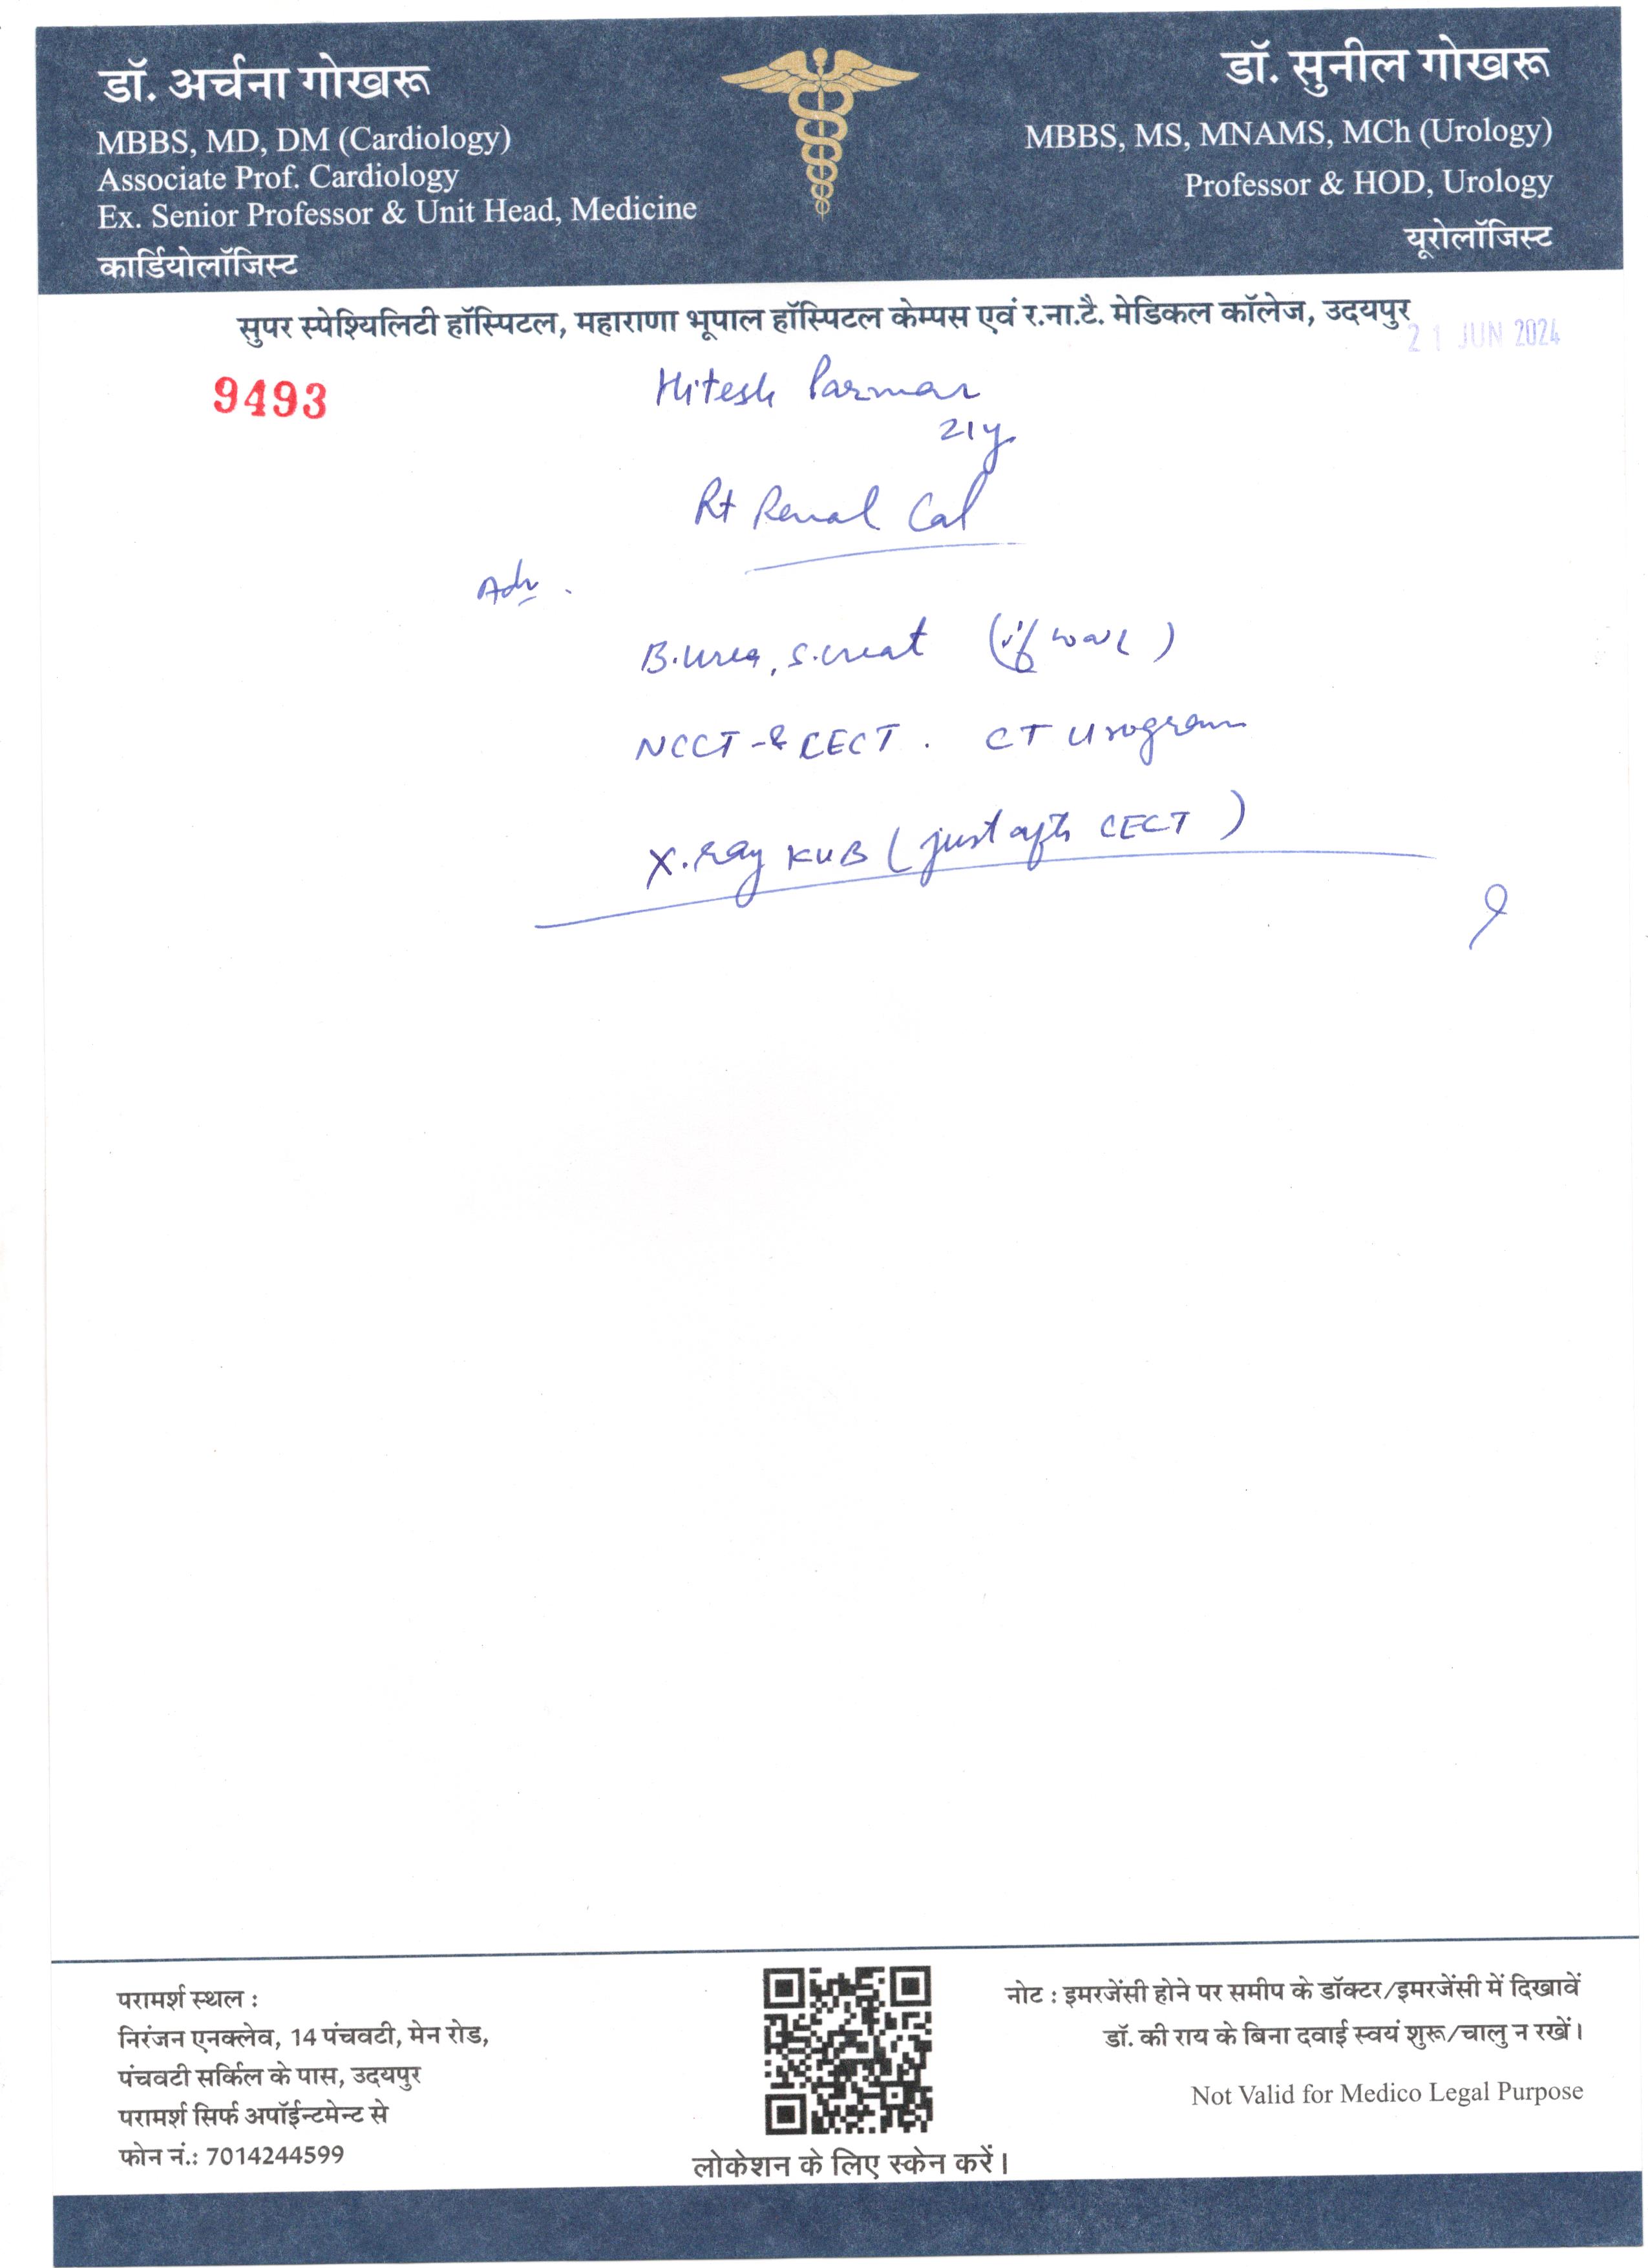 डॉ. अर्चना गोखरू
MBBS, MD, DM (Cardiology)
Associate Prof. Cardiology
Ex. Senior Professor & Unit Head, Medicine
कार्डियोलॉजिस्ट
डॉ. सुनील गोखरू
MBBS, MS, MNAMS, MCh (Urology)
Professor & HOD, Urology
यूरोलॉजिस्ट
सुपर स्पेश्यिलिटी हॉस्पिटल, महाराणा भूपाल हॉस्पिटल केम्पस एवं र.ना.टै. मेडिकल कॉलेज, उदयपुर
21 JUN 2024
9493
Hitesh Parmar
21y
Rt Renal Cal
Adv.
B.urea, S.creat (if
NCCT & CECT. CT Urogram
X.Ray KUB (just after CECT)
परामर्श स्थल :
निरंजन एनक्लेव, 14 पंचवटी, मेन रोड,
पंचवटी सर्किल के पास, उदयपुर
परामर्श सिर्फ अपॉईन्टमेन्ट से
फोन नं.: 7014244599
लोकेशन के लिए स्केन करें।
नोट : इमरजेंसी होने पर समीप के डॉक्टर/इमरजेंसी में दिखावें
डॉ. की राय के बिना दवाई स्वयं शुरू/चालु न रखें।
Not Valid for Medico Legal Purpose